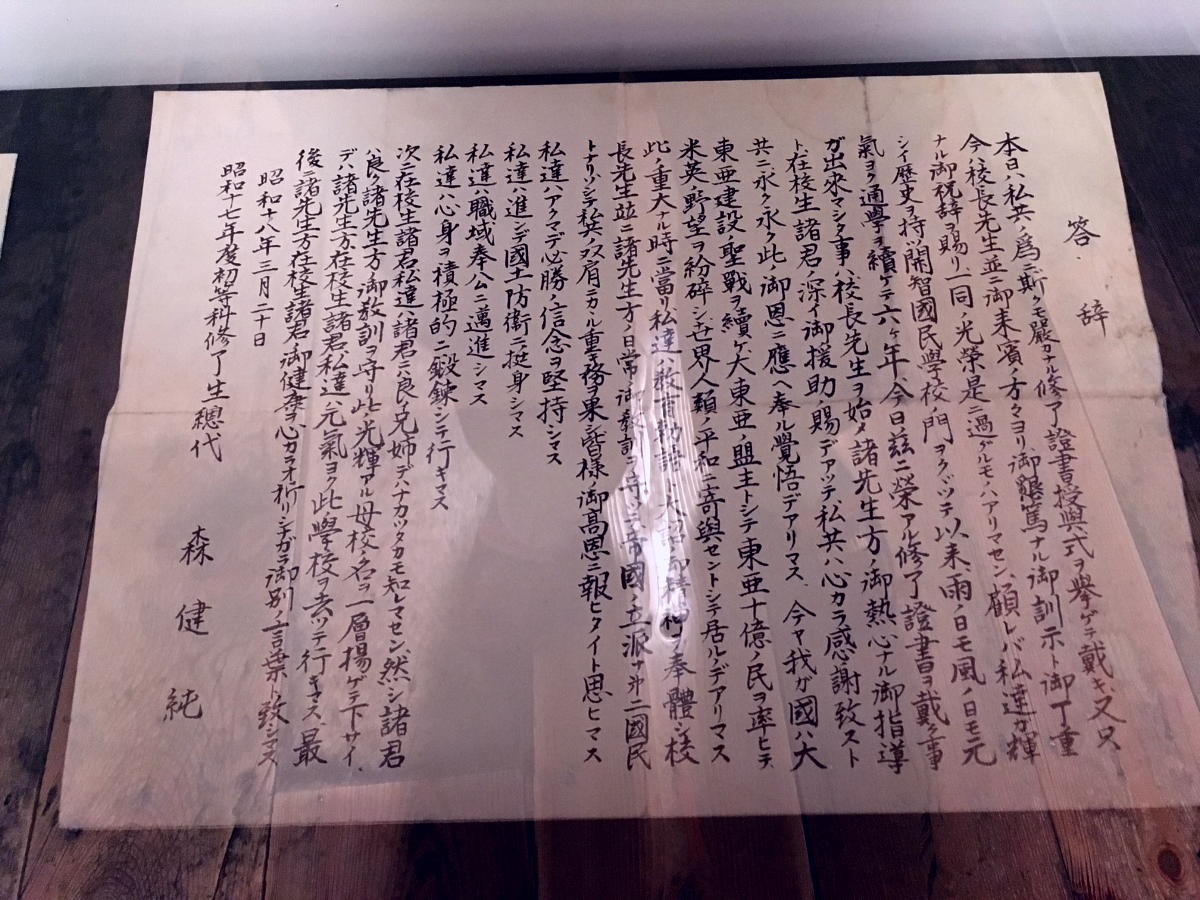 答辞
本日ハ私共ノ爲ニ斯クモ嚴カナル修了證書授與式ヲ擧ゲテ戴キ、又只
今ハ校長先生並ニ御来賓ノ方々ヨリ御懇篤ナル御訓示ト御丁重
ナル御祝辞ヲ賜リ一同ノ光榮是ニ過グルモノハアリマセン、顧レバ私達ガ輝
シイ歴史ヲ持ツ開智國民學校ノ門ヲクグッテ以来、雨ノ日モ風ノ日モ元
氣ヨク通學ヲ續ケテ六ヶ年、今日茲ニ榮アル修了證書ヲ戴ク事
ガ出來マシタ事ハ校長先生ヲ始メ諸先生方ノ御熱心ナル御指導
ト、在校生諸君ノ深イ御援助ノ賜デアッテ、私共ハ心カラ感謝致スト
共ニ永ク永ク此ノ御恩ニ應ヘ奉ル覺悟デアリマス、今ヤ我ガ國ハ大
東亜建設ノ聖戰ヲ續ケ大東亜ノ盟主トシテ東亜十億ノ民ヲ率ヒテ
米英ノ野望ヲ紛碎シ世界人類ノ平和ニ寄與セントシテ居ルノデアリマス
此ノ重大ナル時ニ當リ私達ハ教育勅語ノ大詔ノ御精神ヲ奉體シ校
長先生並ニ諸先生方ノ日常ノ御教訓ヲ守ッテ帝國ノ立派ナ少國民
トナリ、ソシテ私共ノ双肩ニカヽル重キ務ヲ果シ皆様ノ御高恩ニ報ヒタイト思ヒマス
私達ハアクマデ必勝ノ信念ヲ堅持シマス
私達ハ進ンデ國土防衛ニ挺身シマス
私達ハ職域奉公ニ邁進シマス
私達ハ心身ヲ積極的ニ鍛錬シテ行キマス
次ニ在校生諸君私達ハ諸君ニ良イ兄姉デハナカッタカモ知レマセン、然シ諸君
ハ良ク諸先生方ノ御教訓ヲ守リ此ノ光輝アル母校ノ名ヲ一層揚ゲテ下サイ、
デハ諸先生方在校生諸君私達ハ元氣ヨク此ノ學校ヲ去ッテ行キマス、最
後ニ諸先生方在校生諸君ノ御健康ヲ心カラオ祈リシナガラ御別ノ言葉ト致シマス
昭和十八年三月二十日
昭和十七年度初等科修了生總代
森健純